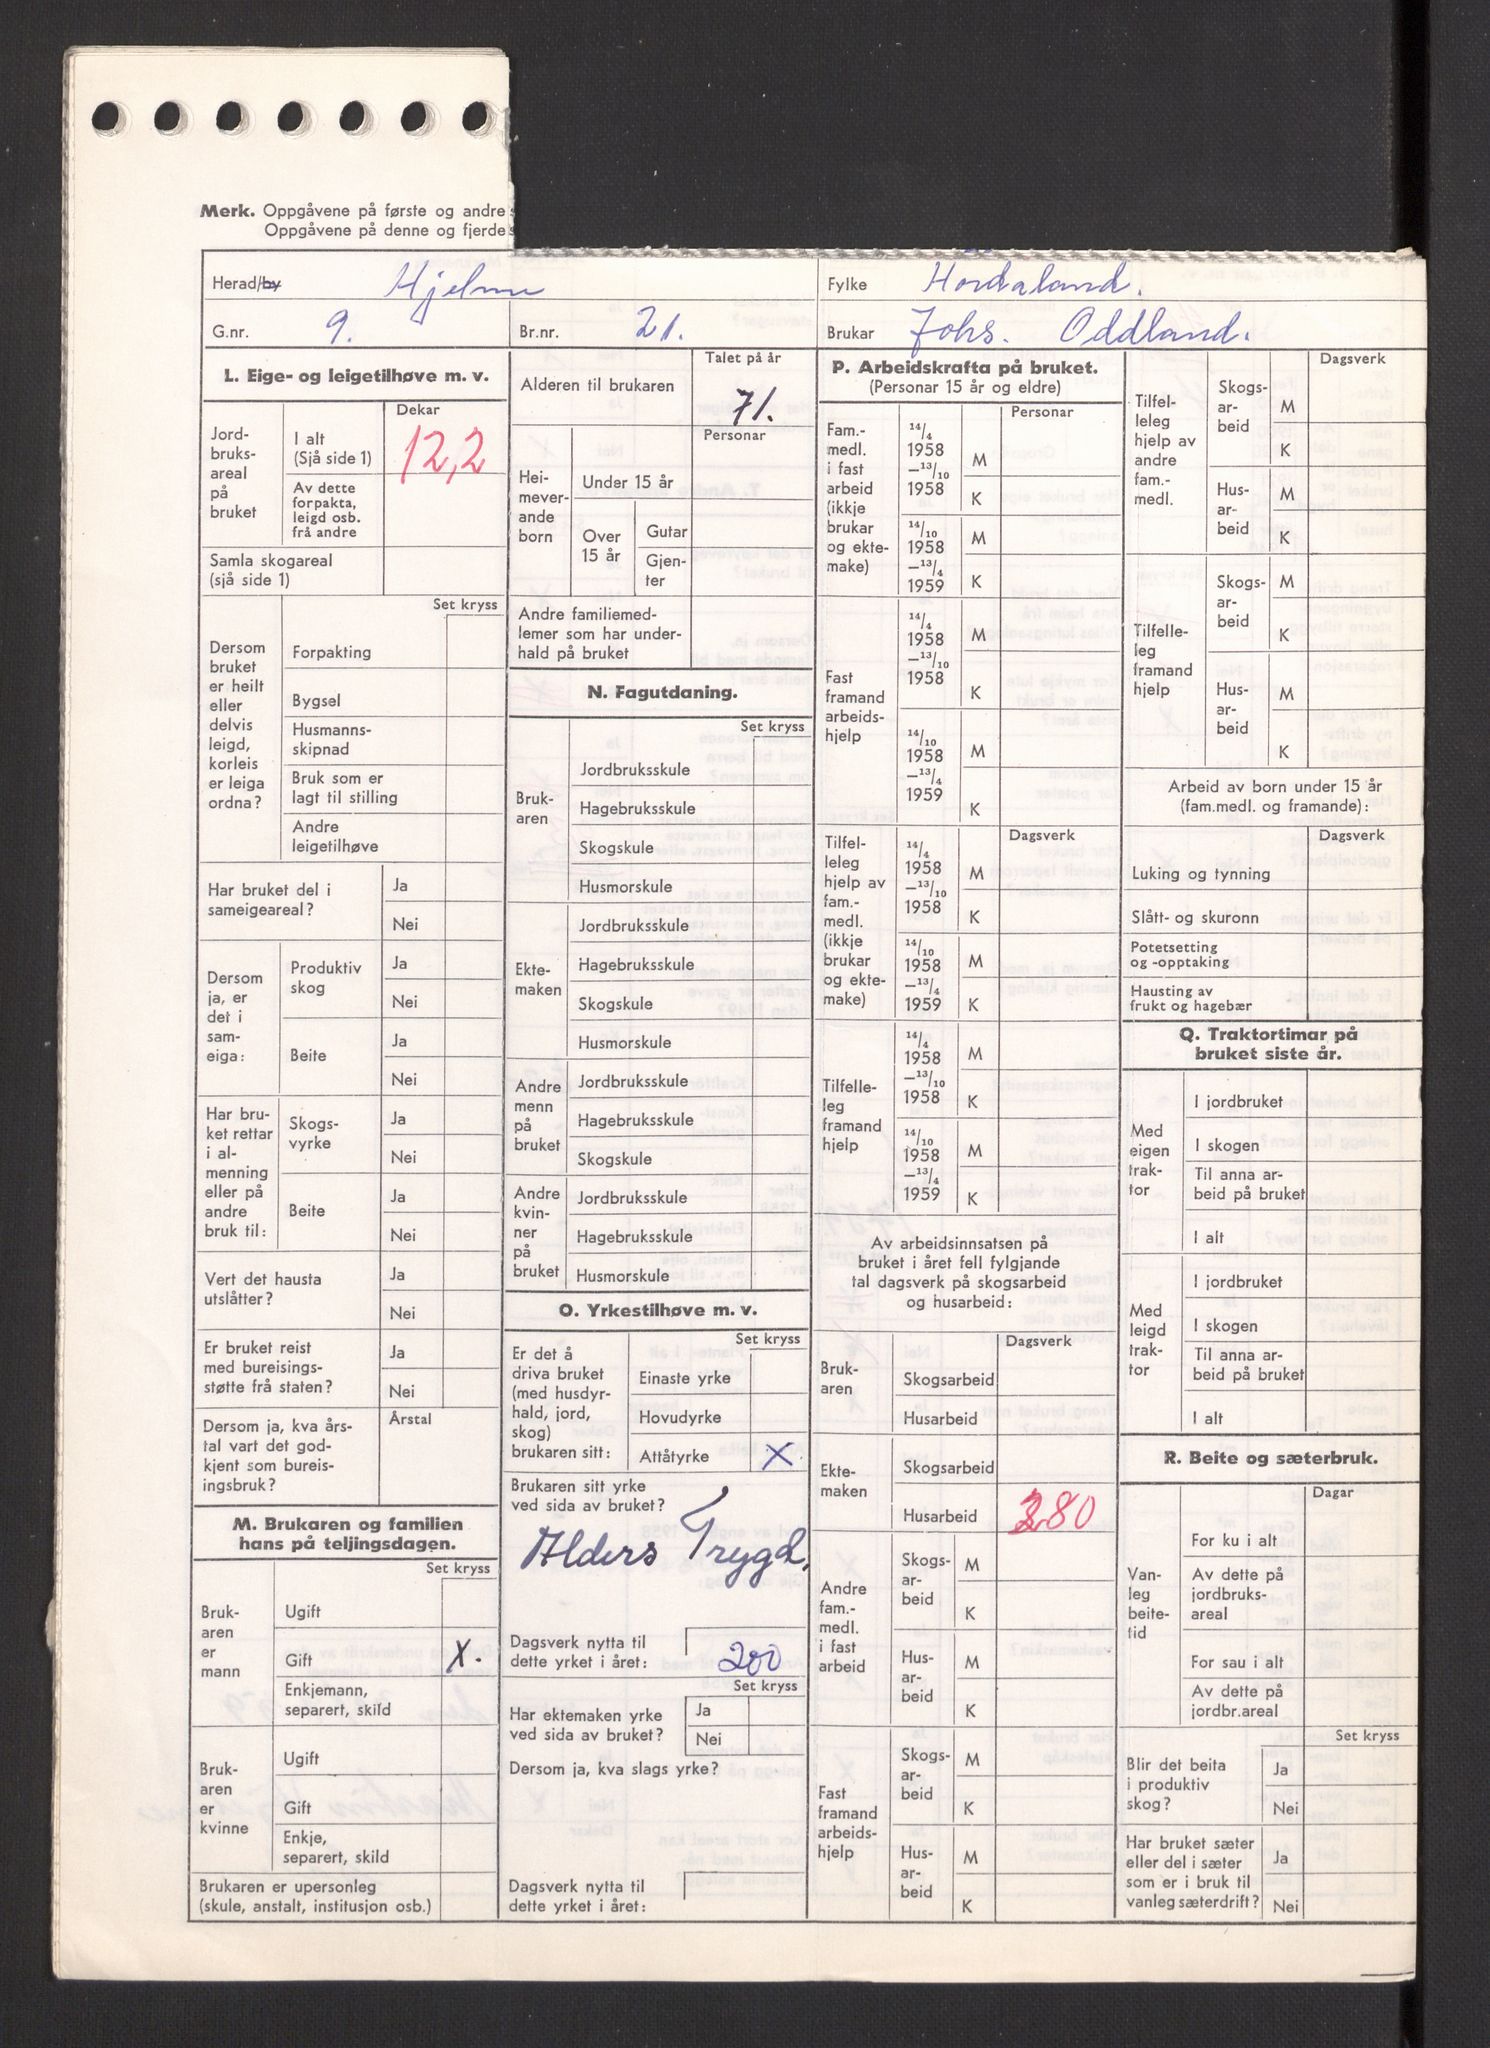 Merk. Oppgåvene på første og andre
Oppgåvene på denne og fjerde
Herad/by Hjelme
Fylke Hordaland.
G.nr. 9.
Br.nr. 21.
Brukar Johs. Oddland.
L. Eige- og leigetilhøve m. v.
Dekar
Jord-
bruks-
areal
på
bruket
I alt
(Sjå side 1)
12,2
Av dette
forpakta,
leigd osb.
frå andre
Samla skogareal
(sjå side 1)
Set kryss
Dersom
bruket
er heilt
eller
delvis
leigd,
korleis
er leiga
ordna?
Forpakting
Bygsel
Husmanns-
skipnad
Bruk som er
lagt til stilling
Andre
leigetilhøve
Har bruket del i
sameigeareal?
Ja
Nei
Dersom
ja, er
det i
sam-
eiga:
Produktiv
skog
Ja
Nei
Beite
Ja
Nei
Har bru-
ket rettar
i al-
menning
eller på
andre
bruk til:
Skogs-
vyrke
Ja
Nei
Beite
Ja
Nei
Vert det hausta
utslåtter?
Ja
Nei
Er bruket reist
med bureisings-
støtte frå staten?
Ja
Nei
Dersom ja, kva års-
tal vart det god-
kjent som bureis-
ingsbruk?
Årstal
M. Brukaren og familien
hans på teljingsdagen.
Set kryss
Bruk-
aren
er
mann
Ugift
Gift X.
Enkjemann,
separert, skild
Bruk-
aren
er
kvinne
Ugift
Gift
Enkje,
separert, skild
Brukaren er upersonleg
(skule, anstalt, institusjon osb.)
Talet på år
Alderen til brukaren 71.
Personar
Hei-
mever-
ande
born
Under 15 år
Over
15 år
Gutar
Gjen-
ter
Andre familiemed-
lemer som har under-
hald på bruket
N. Fagutdaning.
Set kryss
Bruk-
aren
Jordbruksskule
Hagebruksskule
Skogskule
Husmorskule
Ekte-
maken
Jordbruksskule
Hagebruksskule
Skogskule
Husmorskule
Andre
menn
på
bruket
Jordbruksskule
Hagebruksskule
Skogskule
Andre
kvin-
ner
på
bruket
Jordbruksskule
Hagebruksskule
Husmorskule
O. Yrkestilhøve m. v.
Set kryss
Er det å
driva bruket
(med husdyr-
hald, jord,
skog)
brukaren sitt:
Einaste yrke
Hovudyrke
Attåtyrke X
Brukaren sitt yrke
ved sida av bruket?
Alders Trygd.
Dagsverk nytta til
dette yrket i året: 200
Set kryss
Har ektemaken yrke
ved sida av bruket?
Ja
Nei
Dersom ja, kva slags yrke?
Dagsverk nytta til
dette yrket i året:
P. Arbeidskrafta på bruket.
(Personar 15 år og eldre)
Personar
Fam.-
medl.
i fast
arbeid
(ikkje
brukar
og ekte-
make)
14/4
1958
—13/10
1958
M
K
14/10
1958
—13/4
1959
M
K
Fast
framand
arbeids-
hjelp
14/4
1958
—13/10
1958
M
K
14/10
1958
—13/4
1959
M
K
Dagsverk
Tilfel-
leleg
hjelp av
fam.-
medl.
(ikkje
brukar
og ekte-
make)
14/4
1958
—13/10
1958
M
K
14/10
1958
—13/4
1959
M
K
Tilfelle-
leg
framand
hjelp
14/4
1958
—13/10
1958
M
K
14/10
1958
—13/4
1959
M
K
Av arbeidsinnsatsen på
bruket i året fell fylgjande
tal dagsverk på skogsarbeid
og husarbeid:
Dagsverk
Bruk-
aren
Skogsarbeid
Husarbeid
Ekte-
maken
Skogsarbeid
Husarbeid 280
Andre
fam.-
medl.
i fast
arbeid
Skogs-
ar-
beid
M
K
Hus-
ar-
beid
M
K
Fast
framand
arbeids-
hjelp
Skogs-
ar-
beid
M
K
Hus-
ar-
beid
M
K
Dagsverk
Tilfel-
leleg
hjelp av
andre
fam.-
medl.
Skogs-
ar-
beid
M
K
Hus-
ar-
beid
M
K
Tilfelle-
leg
framand
hjelp
Skogs-
ar-
beid
M
K
Hus-
ar-
beid
M
K
Arbeid av born under 15 år
(fam.medl. og framande):
Dagsverk
Luking og tynning
Slått- og skuronn
Potetsetting
og -opptaking
Hausting av
frukt og hagebær
Q. Traktortimar på
bruket siste år.
Med
eigen
trak-
tor
I jordbruket
I skogen
Til anna ar-
beid på bruket
I alt
Med
leigd
trak-
tor
I jordbruket
I skogen
Til anna ar-
beid på bruket
I alt
R. Beite og sæterbruk.
Dagar
Van-
leg
beite-
tid
For ku i alt
Av dette på
jordbruks-
areal
For sau i alt
Av dette på
jordbr.areal
Set kryss
Blir det beita
i produktiv
skog?
Ja
Nei
Har bruket sæter
eller del i sæter
som er i bruk til
vanleg sæterdrift?
Ja
Nei